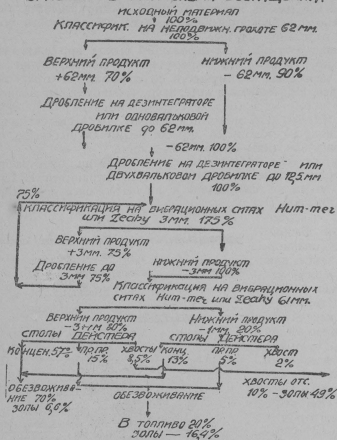 ИСХОДНЫЙ МАТЕРИАЛ
100%
КЛАССИФИК. НА НЕПОДВИЖН. ГРОХОТЕ 62мм.
100%
ВЕРХНИЙ ПРОДУКТ
+62мм. 70%
НИЖНИЙ ПРОДУКТ
-62мм. 90%
ДРОБЛЕНИЕ НА ДЕЗИНТЕГРАТОРЕ
ИЛИ ОДНОВАЛЬКОВОЙ
ДРОБИЛКЕ ДО 62мм.
-62мм. 100%
ДРОБЛЕНИЕ НА ДЕЗИНТЕГРАТОРЕ ИЛИ
ДВУХВАЛЬКОВОМ ДРОБИЛКЕ ДО 12,5мм
100%
75%
КЛАССИФИКАЦИЯ НА ВИБРАЦИОННЫХ СИТАХ Hum-mer
или Leahy 3мм. 175%
ВЕРХНИЙ ПРОДУКТ
+3мм. 75%
ДРОБЛЕНИЕ ДО
3мм 75%
НИЖНИЙ ПРОДУКТ
-3мм 100%
КЛАССИФИКАЦИЯ НА ВИБРАЦИОННЫХ
СИТАХ Hum-mer или Leahy 61мм.
ВЕРХНИЙ ПРОДУКТ
-3+1м 80%
НИЖНИЙ ПРОДУКТ
-1мм. 20%
СТОЛЫ ДЕЙСТЕРА
СТОЛЫ ДЕЙСТЕРА
КОНЦЕН. 57%
ПР.ПР.
15%
ХВОСТЫ
8,5%
КОНЦ.
13%
ПР.ПР.
5%
ХВОСТ
2%
ОБЕЗВОЖИВА-
НИЕ 70%
ЗОЛЫ 6,6%
ОБЕЗВОЖИВАНИЕ
ХВОСТЫ ОТС.
10% - ЗОЛЫ 49%
В ТОПЛИВО 20%
ЗОЛЫ — 16,4%